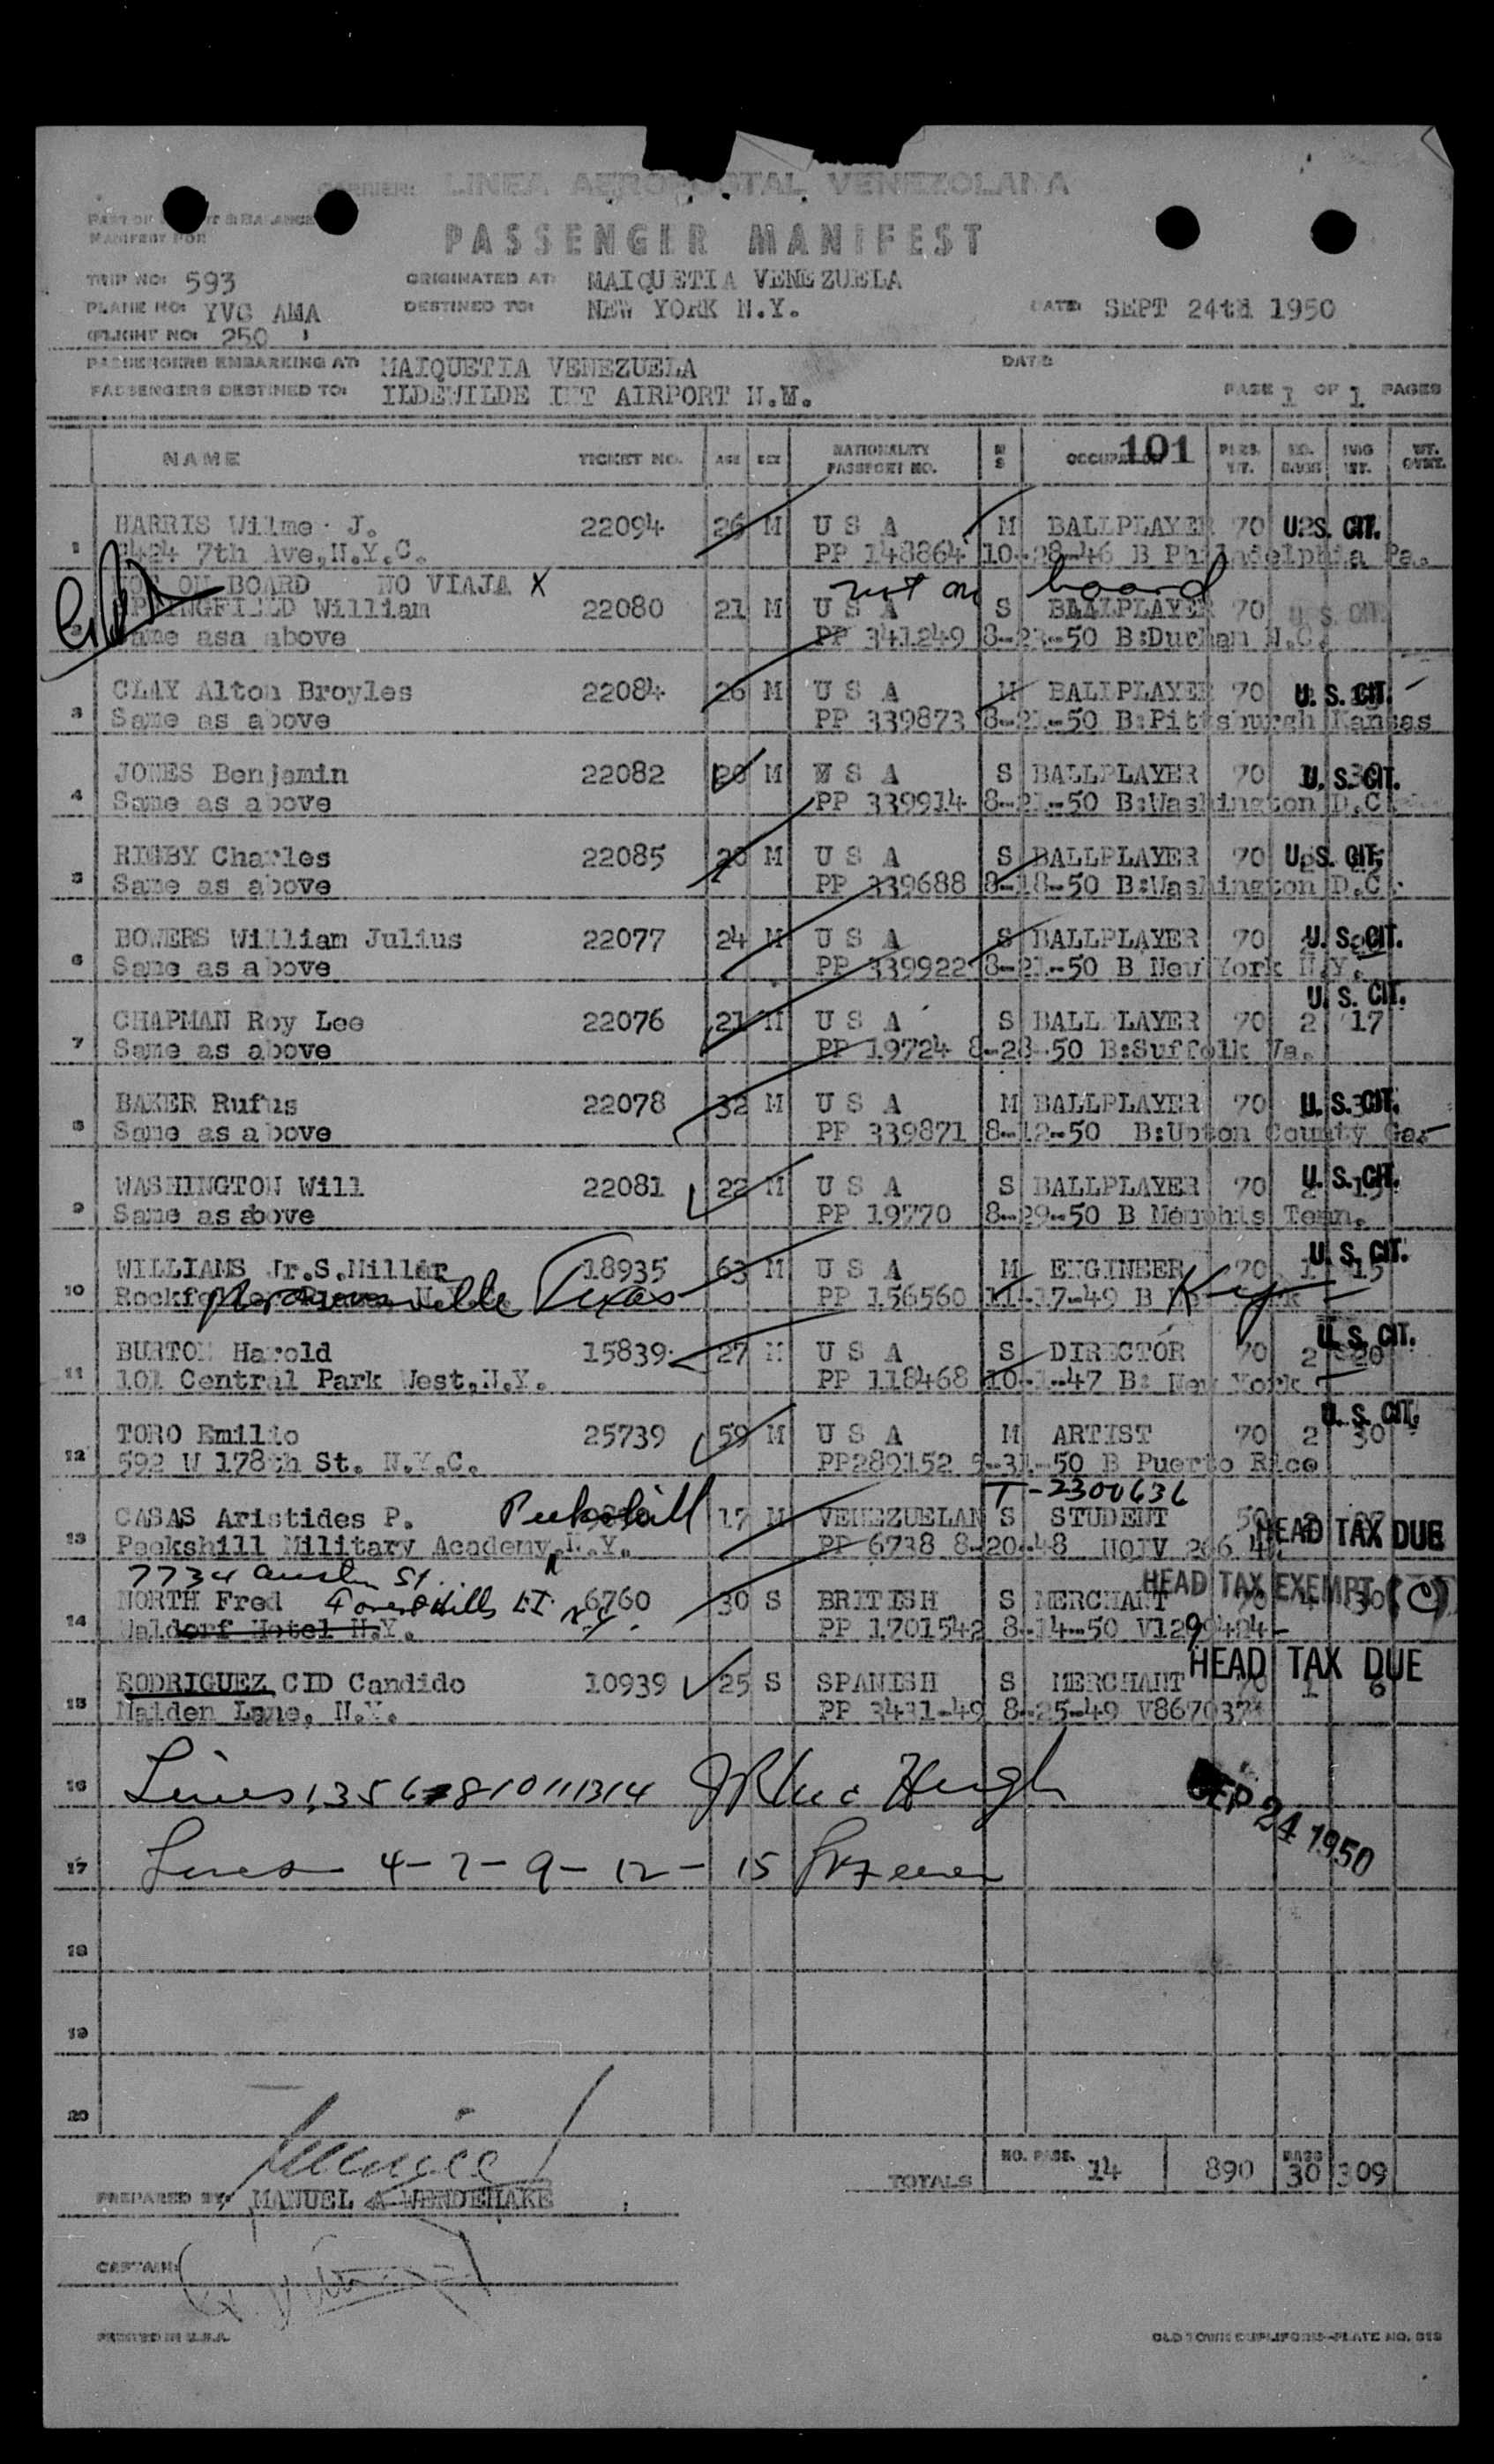 CARRIER: LINEA AEROPOSTAL VENEZOLANA
PART OF & BALANCE
MANIFEST FOR
PASSENGER MANIFEST
TRIP NO: 593 ORIGINATED AT: MAIQUETIA VENEZUELA
PLANE NO: YVC AMA DESTINED TO: NEW YORK N.Y. DATE: SEPT 24th 1950
(FLIGHT NO: 250 )
PASSENGERS EMBARKING AT: MAIQUETIA VENEZUELA DATE
PASSENGERS DESTINED TO: ILDEWILDE INT AIRPORT N.Y. PAGE 1 OF 1 PAGES
101
NAME TICKET NO. AGE SEX NATIONALITY PASSPORT NO. M S OCCUPATION PERS. WT. NO. BAGG BAG WT.
1 HARRIS Wilme J. 22094 26 M U S A M BALLPLAYER 70 U.S. CIT.
7th Ave,N.Y.C. PP 148864 10-28-46 B Philadelphia Pa.
NOT ON BOARD NO VIAJA X not on board
2 SPRINGFIELD William 22080 21 M U S A S BALLPLAYER 70 U.S. CIT.
Same asa above PP 341249 8-23-50 B:Durham N.C.
3 CLAY Alton Broyles 22084 26 M U S A M BALLPLAYER 70 U. S. CIT.
Same as above PP 339873 8-21-50 B:Pittsburgh Kansas
4 JONES Benjamin 22082 20 M U S A S BALLPLAYER 70 U. S. CIT.
Same as above PP 339914 8-21-50 B:Washington D.C.
5 RIGBY Charles 22085 20 M U S A S BALLPLAYER 70 U.S. CIT.
Same as above PP 339688 8-18-50 B:Washington D.C.
6 BOWERS William Julius 22077 24 M U S A S BALLPLAYER 70 U. S. CIT.
Same as above PP 339922 8-21-50 B New York N.Y.
7 CHAPMAN Roy Lee 22076 21 M U S A S BALLPLAYER 70 2 17 U. S. CIT.
Same as above PP 19724 8-28-50 B:Suffolk Va.
8 BAKER Rufus 22078 32 M U S A M BALLPLAYER 70 U. S. CIT.
Same as above PP 339871 8-12-50 B:Upton County Ga.
9 WASHINGTON Will 22081 22 M U S A S BALLPLAYER 70 U. S. CIT.
Same as above PP 19770 8-29-50 B Memphis Tenn.
10 WILLIAMS Jr.S.Miller 18935 63 M U S A M ENGINEER 70 1 15 U. S. CIT.
Texas PP 156560 11-17-49 B Ky
11 BURTON Harold 15839 27 M U S A S DIRECTOR 70 2 20 U. S. CIT.
101 Central Park West,N.Y. PP 118468 10-1-47 B: New York
12 TORO Emilio 25739 59 M U S A M ARTIST 70 2 30 U. S. CIT.
592 W 178th St. N.Y.C. PP289152 5-31-50 B Puerto Rico
T-2300636
13 CASAS Aristides P. Peekskill 17 M VENEZUELAN S STUDENT HEAD TAX DUE
Peekshill Military Academy N.Y. PP 6738 8-20-48 NQIV 266 4
7734 Austin St.
14 NORTH Fred Forest Hills LI N.Y. 6760 30 S BRITISH S MERCHANT HEAD TAX EXEMPT (C)
Waldorf Hotel N.Y. PP 1701542 8-14-50 V1299424
15 RODRIGUEZ CID Candido 10939 25 S SPANISH S MERCHANT 70 1 6 HEAD TAX DUE
Maiden Lane, N.Y. PP 3431-49 8-25-49 V867037
16 Lines 1 3 5 6 8 10 11 13 14 SEP 24 1950
17 Lines 4-7-9-12-15
18
19
20
TOTALS NO. PASS. 14 890 BAGG 30 309
PREPARED BY: MANUEL A WENDEHAKE
CAPTAIN:
PRINTED IN U.S.A. OLD TOWN DUPLIFORMS-PLATE NO.